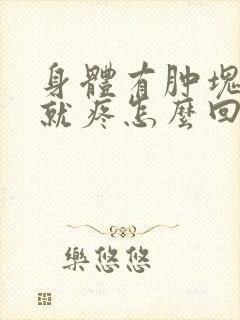 身體有肿塊
就疼怎麽回
樂悠悠